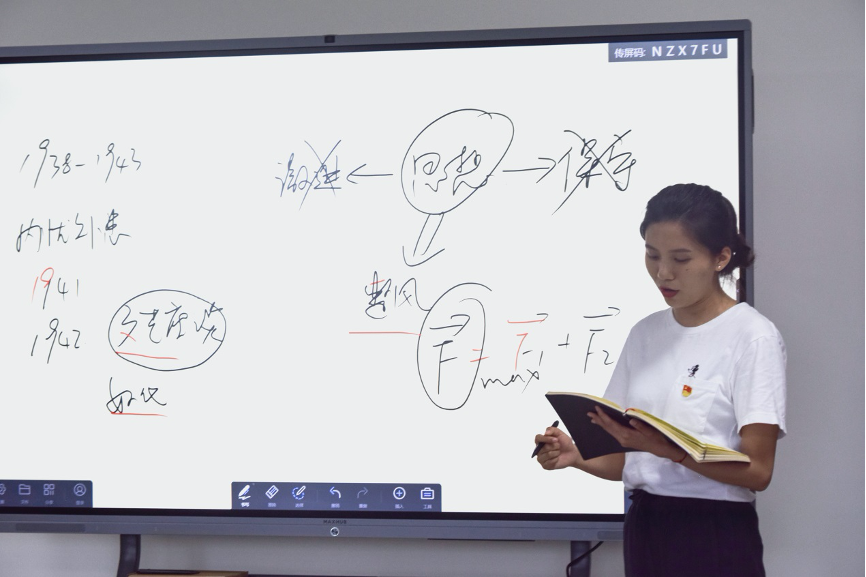 传屏码: NZX7FU
1938-1943
内忧外患
1941
1942
激进 ← 思想 → 保守
整风
F max = F1 + F2
MAXHUB